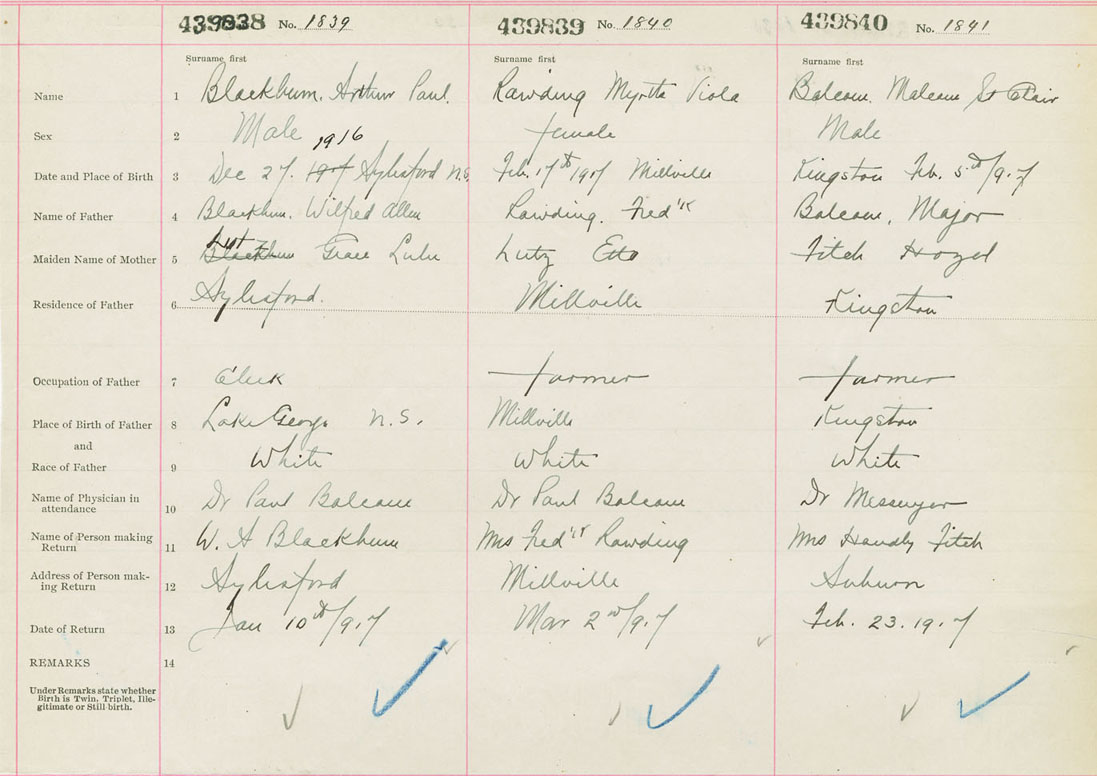 439838 No. 1839 439839 No. 1840 439840 No. 1841
Surname first Surname first Surname first
Name 1 Blackburn, Arthur Paul. Rawding Myrtle Viola Balcom. Malcom St Clair
Sex 2 Male female Male
1916
Date and Place of Birth 3 Dec 27. 1917 Aylesford N.S. Feb. 17th 1917 Millville Kingston Feb. 5th/917
Name of Father 4 Blackburn. Wilfred Allen Rawding. Fred'k Balcom, Major
Maiden Name of Mother 5 Blackburn Grace Lulu Lutz Etta Fitch Hazel
Residence of Father 6 Aylesford. Millville Kingston
Occupation of Father 7 Clerk farmer farmer
Place of Birth of Father 8 Lake George N.S. Millville Kingston
and
Race of Father 9 White White White
Name of Physician in
attendance 10 Dr Paul Balcom Dr Paul Balcom Dr Messenger
Name of Person making
Return 11 W. A Blackburn Mrs Fred'k Rawding Mrs Handly Fitch
Address of Person mak-
ing Return 12 Aylesford Millville Auburn
Date of Return 13 Jan 10th/917 Mar 2nd/917 Feb. 23. 1917
REMARKS 14
Under Remarks state whether
Birth is Twin. Triplet, Ille-
gitimate or Still birth.